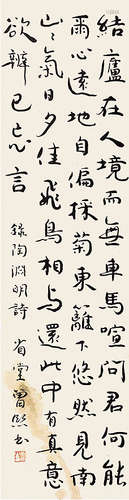 結廬在人境而無車馬喧問君何能
爾心遠地自偏採菊東籬下悠然見南
山々氣日夕佳飛鳥相与還此中有真意
欲辨已忘言 錄陶淵明詩 省堂曾熙书